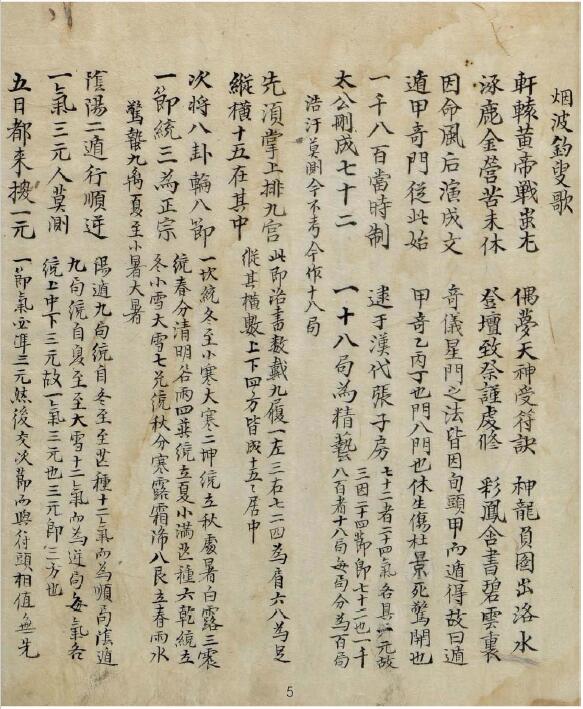 烟波釣叟歌
軒轅黃帝戰蚩尤 偶夢天神受符訣 神龍負圖出洛水
涿鹿金營苦未休 登壇致祭謹虔修 彩鳳含書碧雲裏
因命風后演成文 奇儀星門之法皆因旬頭甲而遁得故曰遁
遁甲奇門從此始 甲奇乙丙丁也門八門也休生傷杜景死驚開也
一千八百當時制 逮于漢代張子房 七十二者二十四氣各具三元故
三因二十四節即七十二也一千
太公刪成七十二 一十八局為精藝 八百者十八局每局分為百局
浩汗莫測今不考今作十八局
先須掌上排九宮 此即洛書数戴九履一左三右七二四為肩六八為足
縱橫十五在其中 縱其橫數上下四方皆成十五〻居中
次將八卦輪八節 一坎統冬至小寒大寒二坤統立秋處暑白露三震
統春分清明谷雨四巽統立夏小滿芒種六乾統立
一節統三為正宗 冬小雪大雪七兌統秋分寒露霜降八艮立春雨水
驚蟄九离夏至小暑大暑
陰陽二遁行順逆 陽遁九局統自冬至至芒種十二氣而為順局陰遁
一氣三元人莫測 九局統自夏至至大雪十二氣而為逆局每氣各
統上中下三元故一氣三元也三元即三方也
五日都來換一元 一節氣必準三元然後交次節而與符頭相值無先
5